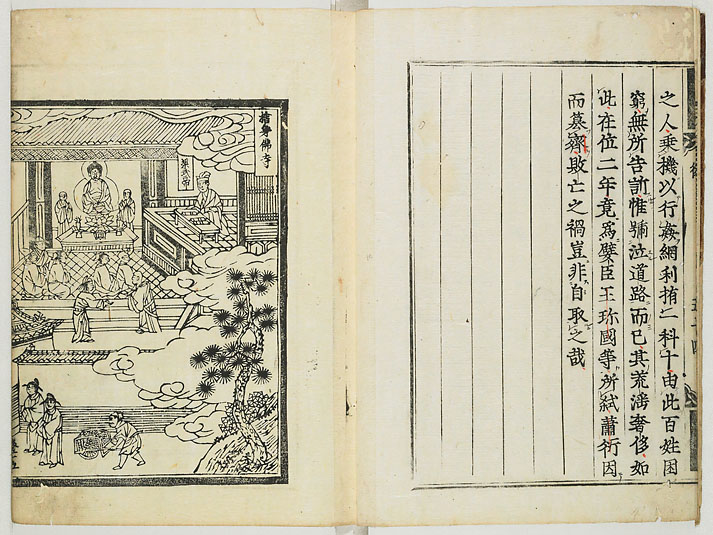 之人乘機以行姦網利科十由此百姓困
窮無所告訴惟號泣道路而已其荒淫奢侈如
此在位二年竟爲嬖臣王珍國等所弑蕭衍因
而篡齊敗亡之禍豈非自取之哉
捨身佛寺
梁武帝